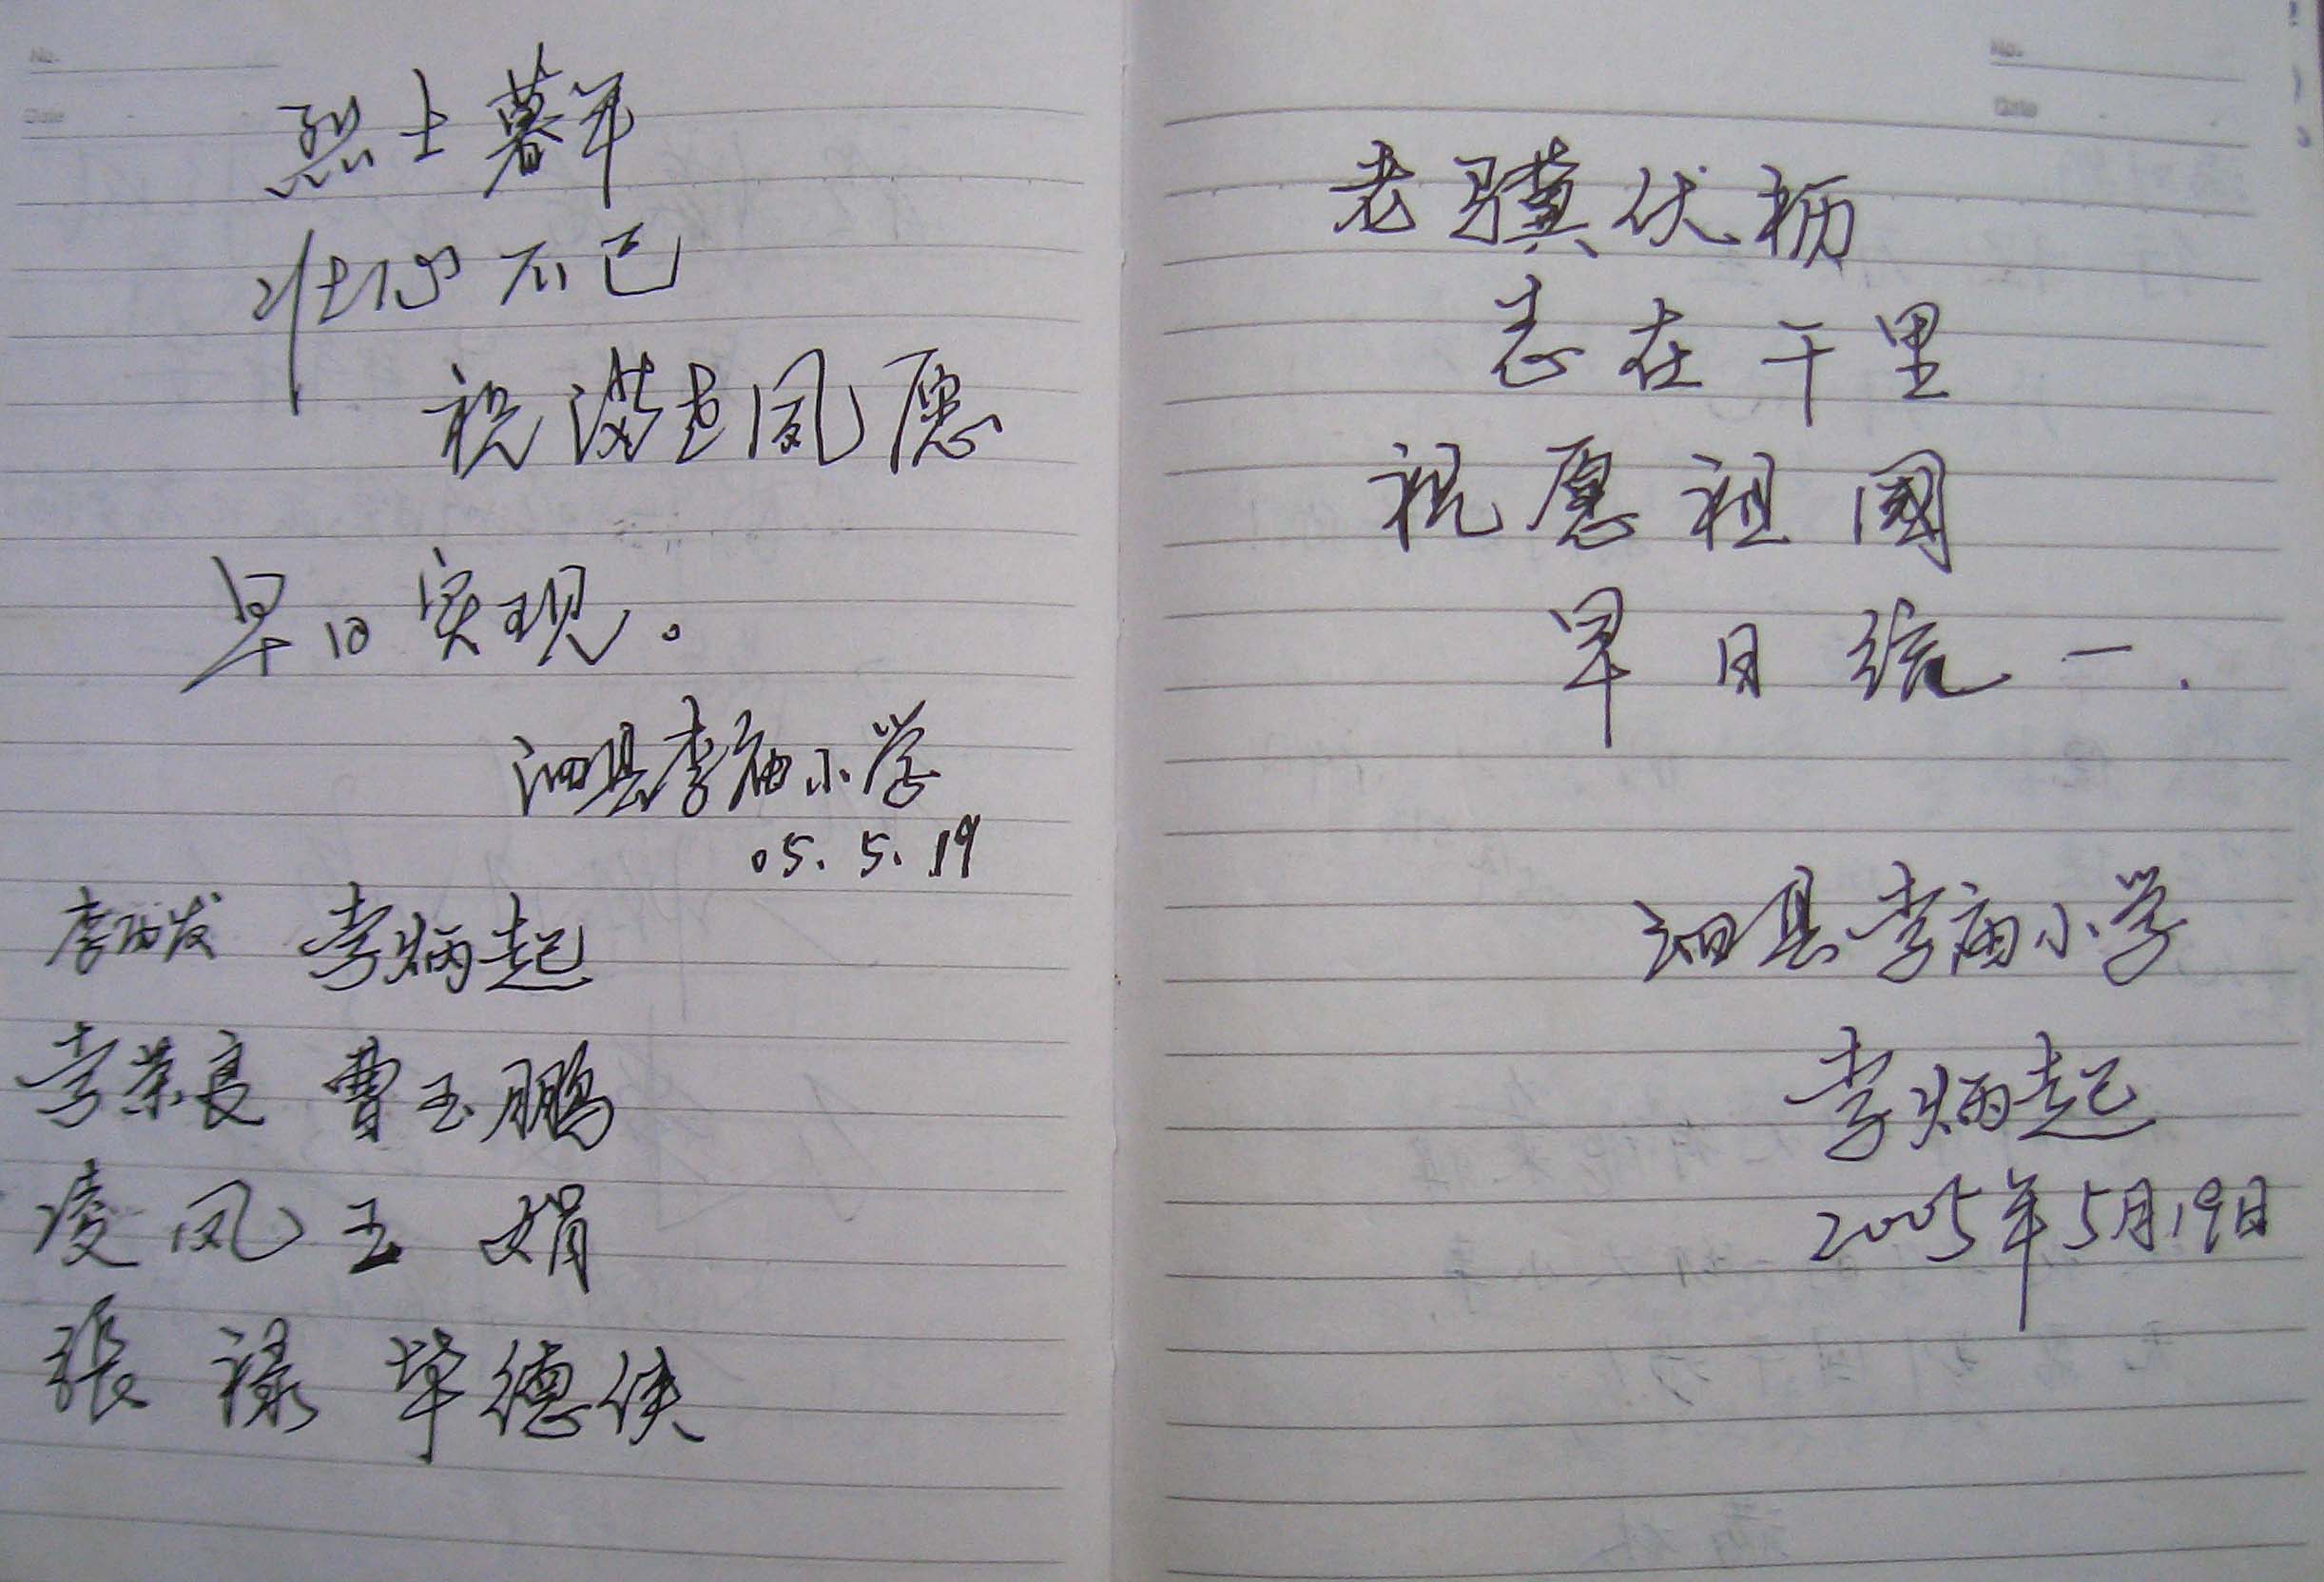 烈士暮年
壮心不已
祝满老夙愿
早日实现。
泗县李庙小学
05.5.19
李炳起
李荣良 曹玉鹏
凌凤玉 娟
張 禄 毕德侠
老骥伏枥
志在千里
祝愿祖國
早日统一.
泗县李庙小学
李炳起
2005年5月19日